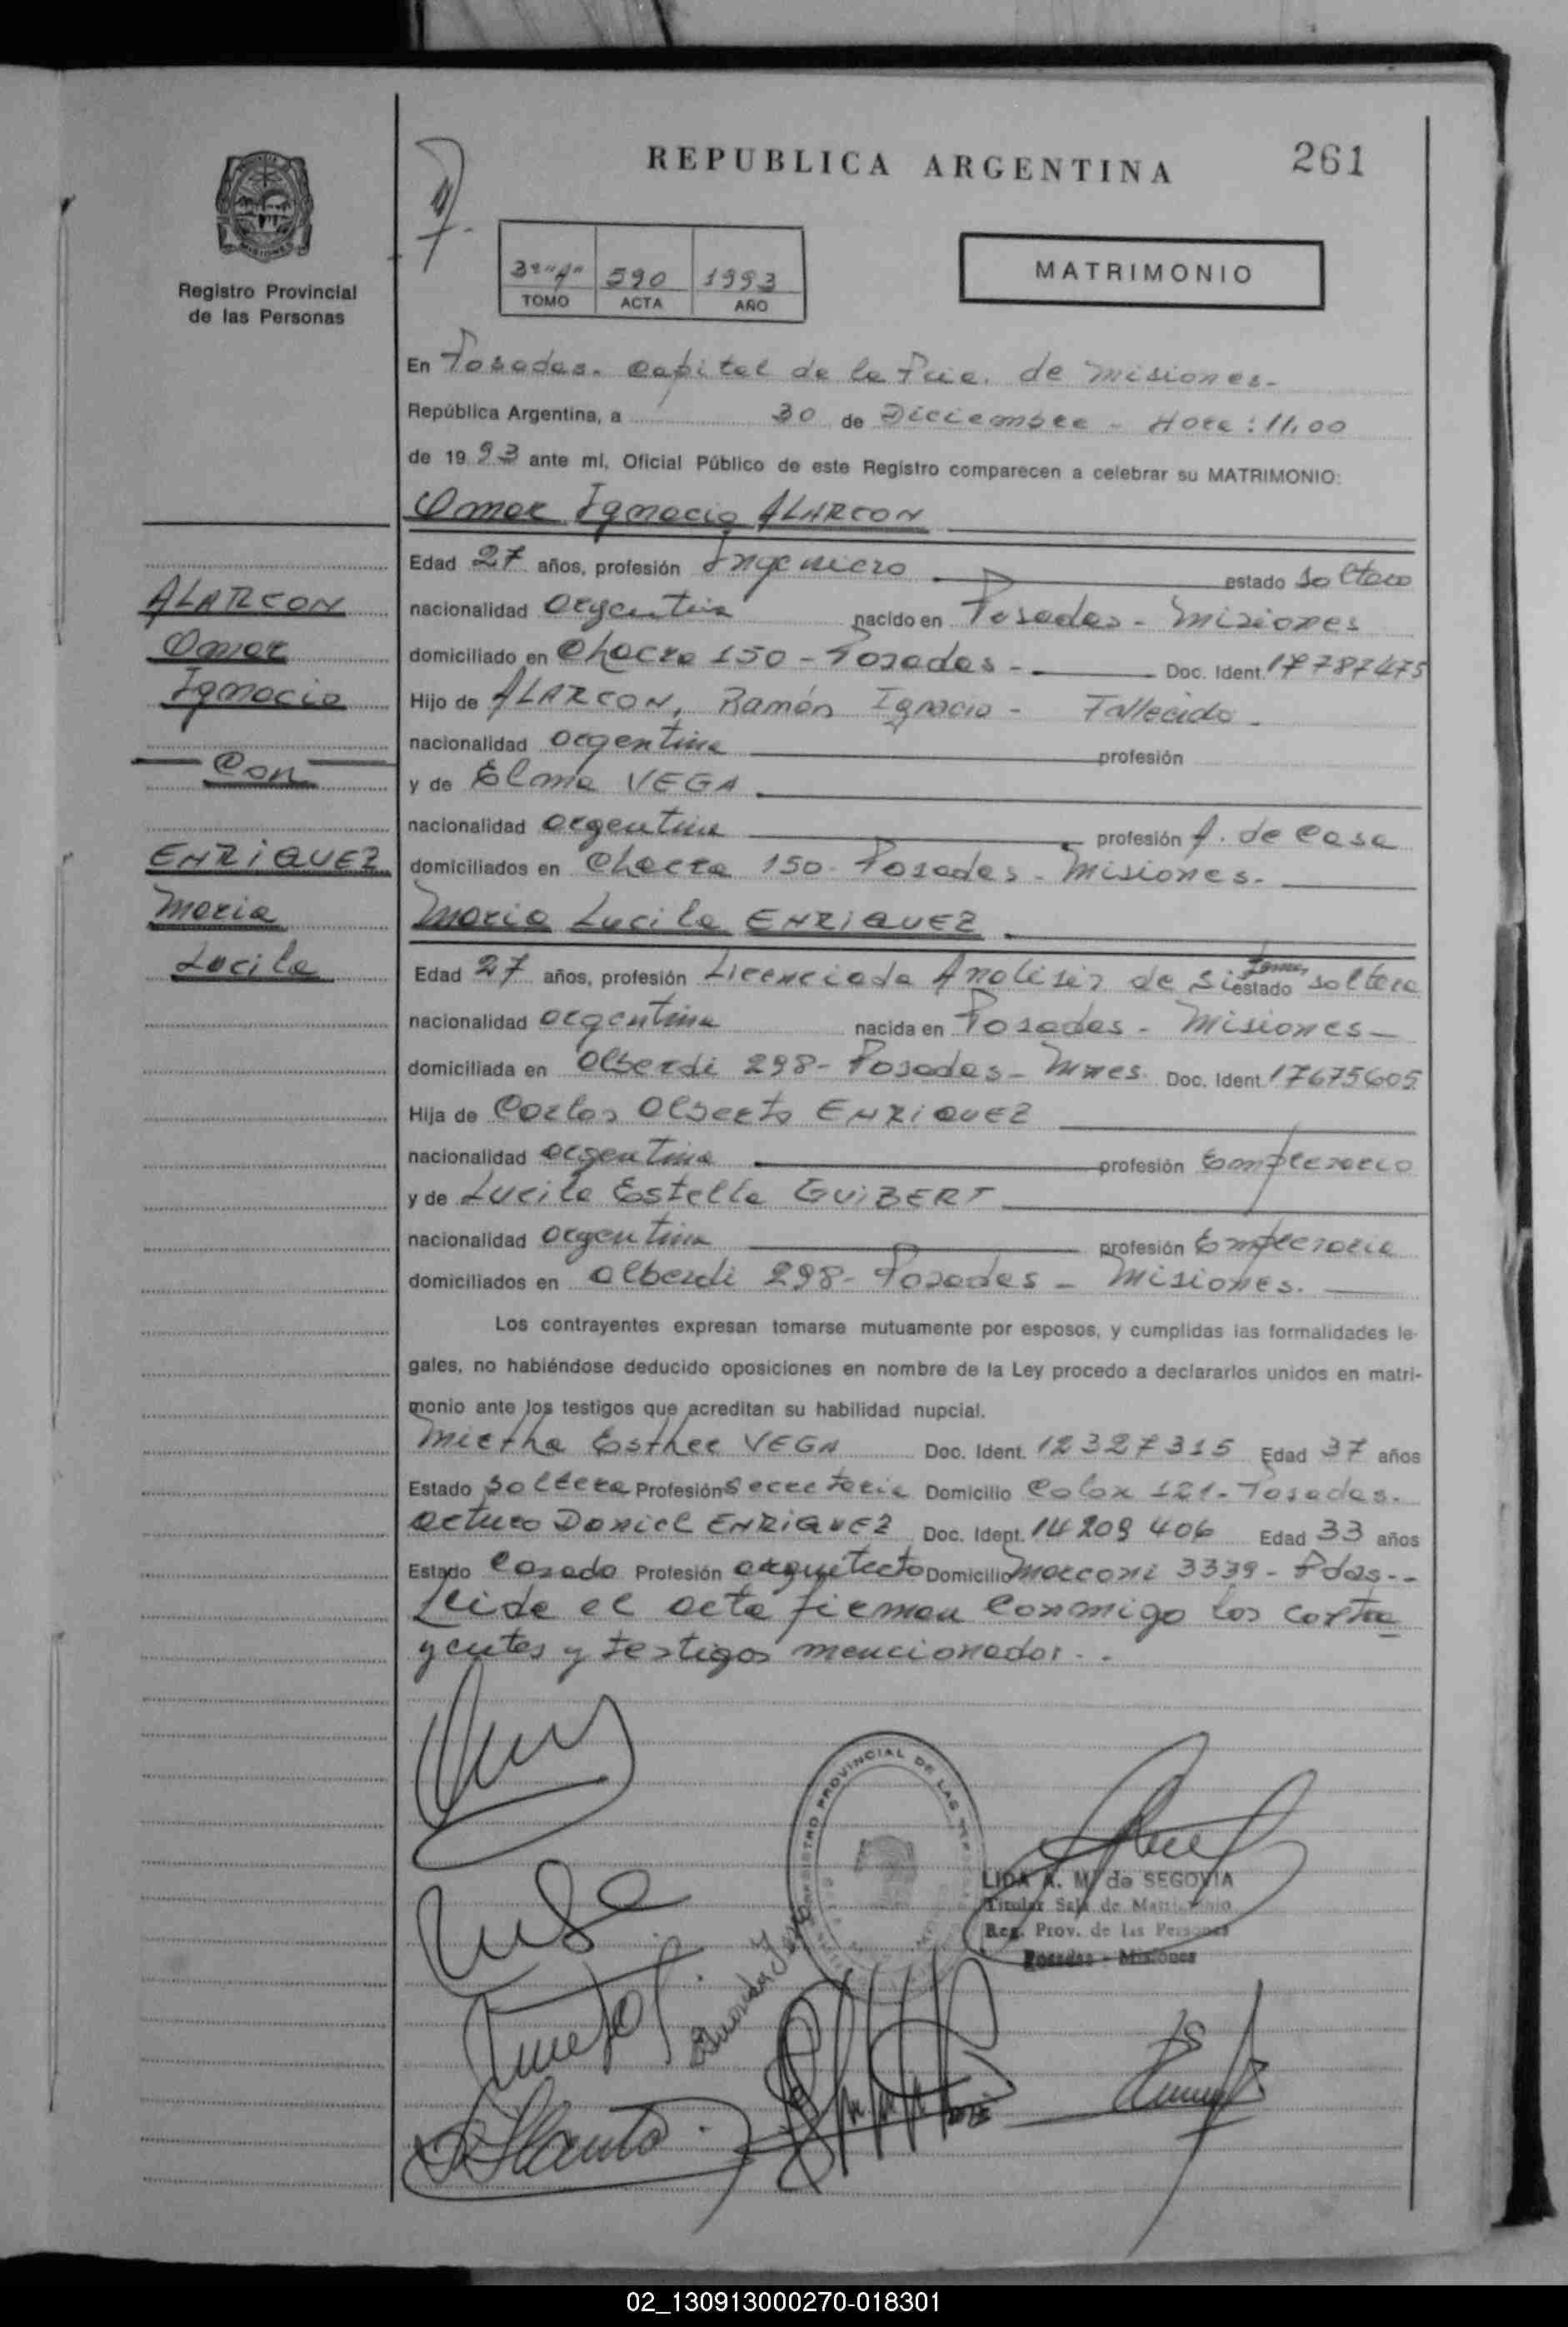 REPUBLICA ARGENTINA
261
Registro Provincial
de las Personas
3º "A" 590 1993
TOMO ACTA AÑO
MATRIMONIO
En Posadas. Capital de la Pcia. de Misiones.-
República Argentina, a 30 de Diciembre - Hora: 11,00
de 1993 ante mí, Oficial Público de este Registro comparecen a celebrar su MATRIMONIO:
Omar Ignacio ALARCON
Edad 27 años, profesión Ingeniero estado soltero
nacionalidad argentina nacido en Posadas - Misiones
domiciliado en Chacra 150 - Posadas - Doc. Ident. 17787475
Hijo de ALARCON, Ramón Ignacio - Fallecido -
nacionalidad argentina profesión
y de Elma VEGA
nacionalidad argentina profesión A. de Casa
domiciliados en Chacra 150 - Posadas - Misiones.
María Lucila ENRIQUEZ
Edad 27 años, profesión Licenciada Analisis de Sistemas estado soltera
nacionalidad argentina nacida en Posadas - Misiones -
domiciliada en Alberdi 298 - Posadas - Mnes. Doc. Ident. 17675605
Hija de Carlos Alberto ENRIQUEZ
nacionalidad argentina profesión Empresario
y de Lucila Estella GUIBERT
nacionalidad argentina profesión Empresaria
domiciliados en Alberdi 298 - Posadas - Misiones.
Los contrayentes expresan tomarse mutuamente por esposos, y cumplidas las formalidades le-
gales, no habiéndose deducido oposiciones en nombre de la Ley procedo a declararlos unidos en matri-
monio ante los testigos que acreditan su habilidad nupcial.
Mirtha Esther VEGA Doc. Ident. 12327315 Edad 37 años
Estado soltera Profesión Secretaria Domicilio Colon 121 - Posadas.
Arturo Daniel ENRIQUEZ Doc. Ident. 14209406 Edad 33 años
Estado Casado Profesión arquitecto Domicilio Marconi 3339 - Pdas--
Leida el acta firman conmigo los contra
yentes y testigos mencionados. -
ALARCON
Omar
Ignacio
Con
ENRIQUEZ
Maria
Lucila
REGISTRO PROVINCIAL DE LAS
LIDA A. M. de SEGOVIA
Titular Sala de Matrimonio
Reg. Prov. de las Personas
Posadas - Misiones
02_130913000270-018301